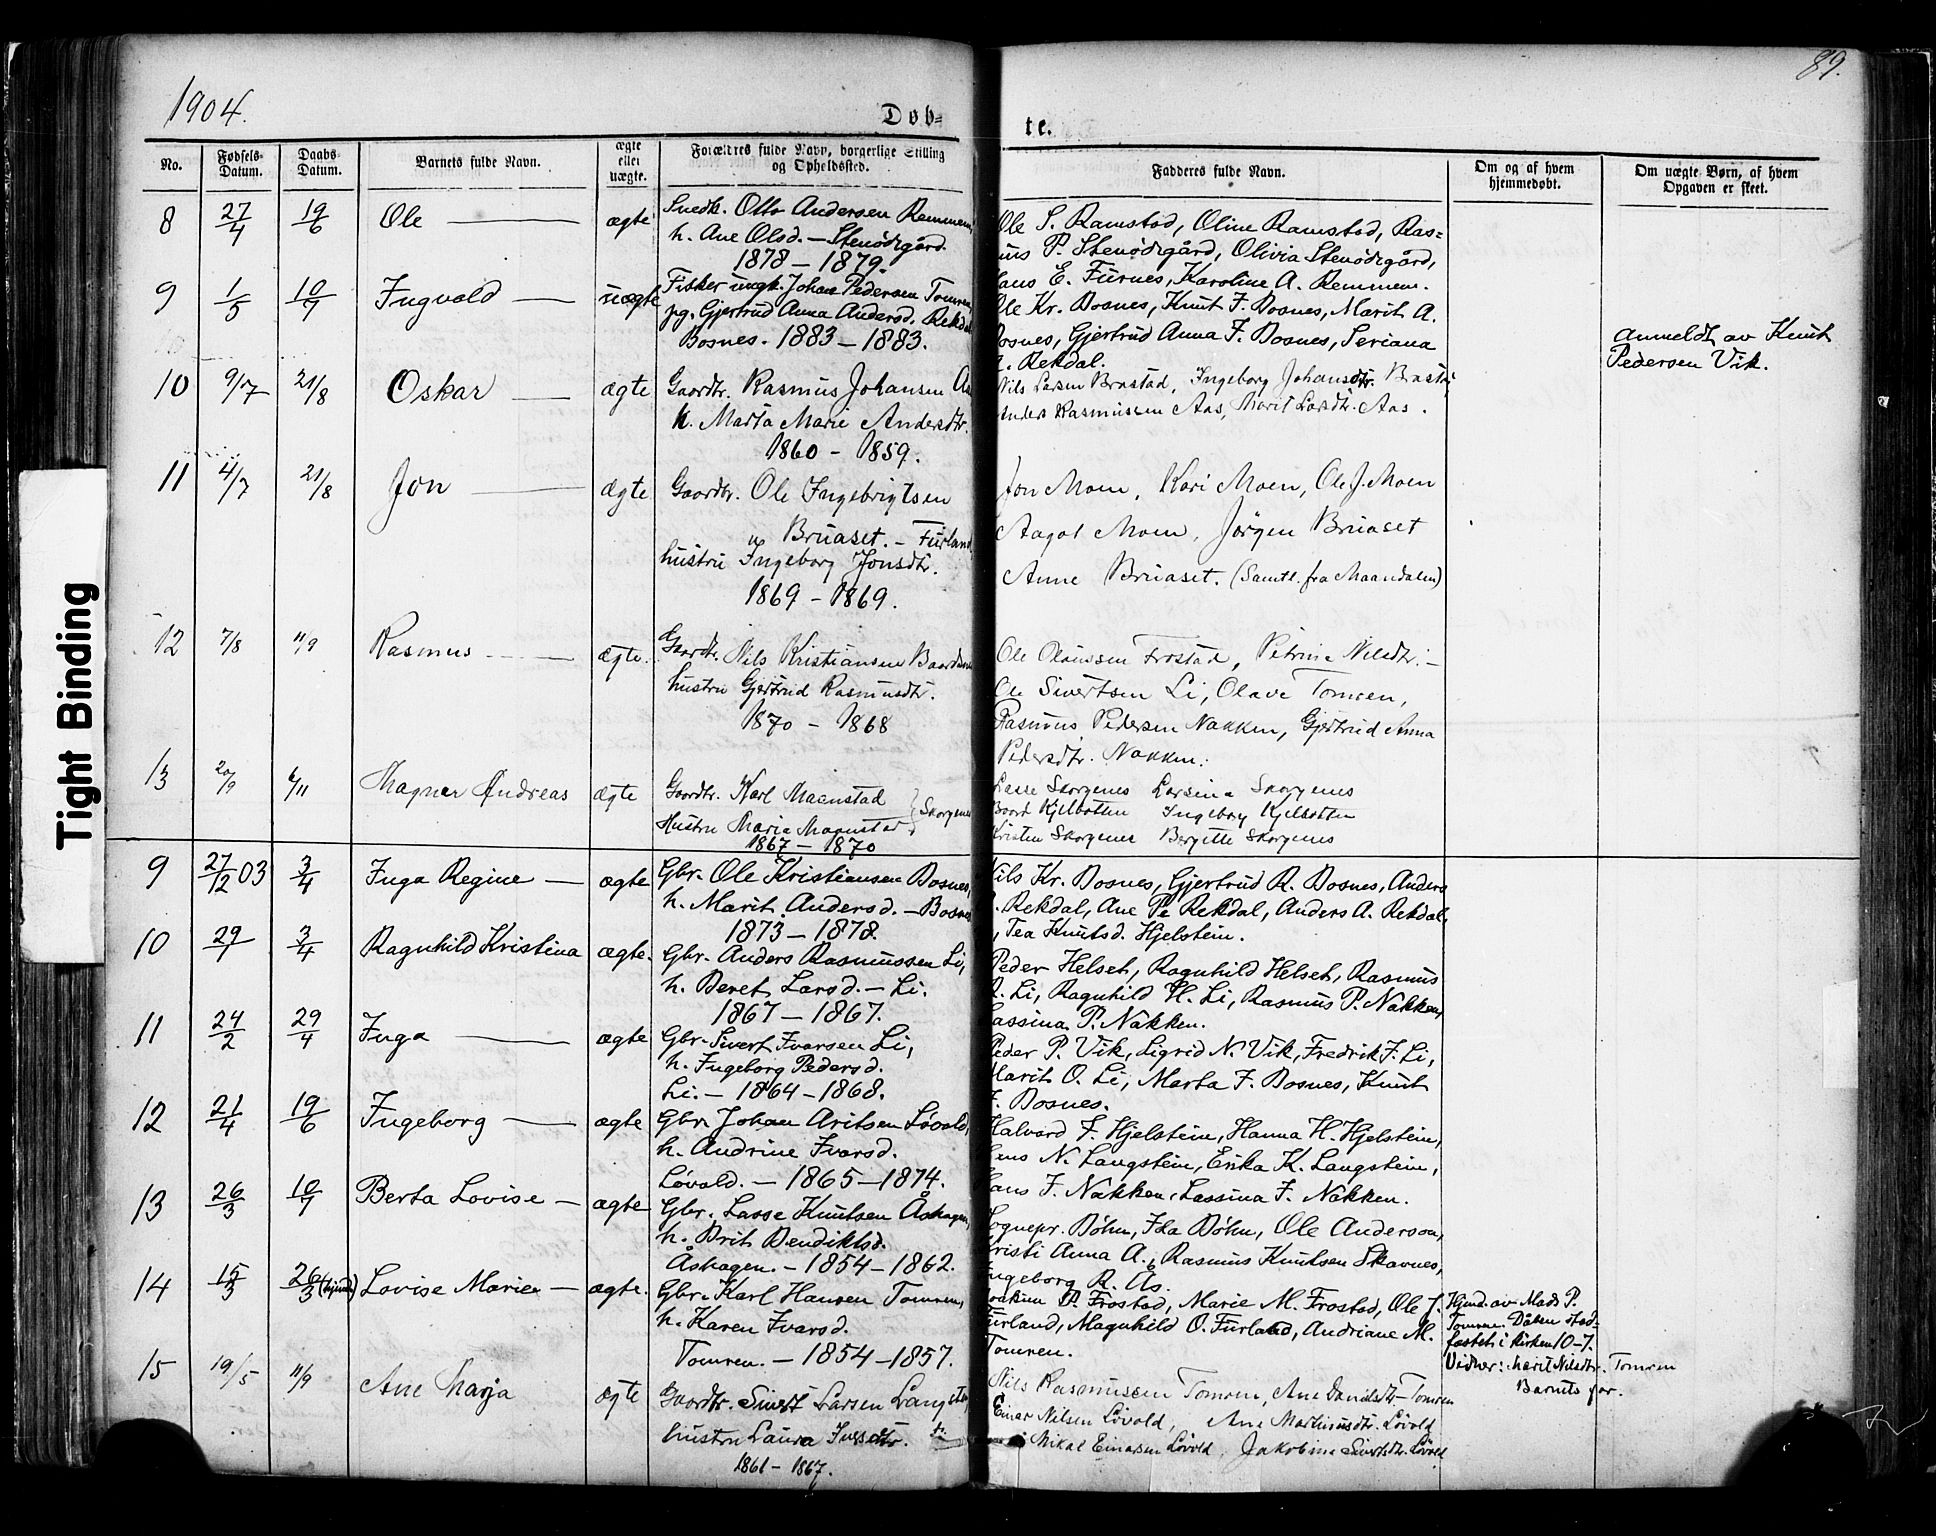 1904.
Døb=
te.
89.
No.
Fødsels-Datum.
Daabs-Datum.
Barnets fulde Navn.
ægte eller uægte.
Forældres fulde Navn, borgerlige Stilling og Opholdssted.
Fadderes fulde Navn.
Om og af hvem hjemmedøbt.
Om uægte Børn, af hvem Opgaven er skeet.
8 27/4 19/6 Ole — ægte Snedk. Otto Andersen Remmem,
h. Ane Olsd. — Stenødegård.
1878 — 1879.
Ole S. Ramstad, Oline Ramstad, Ras=
mus P. Stenødegård, Olivia Stenødegård,
Hans E. Furnes, Karoline A. Remmem.
9 1/5 10/7 Ingvald — uægte Fisker ungk. Johan Pedersen Tomren,
pg. Gjertrud Anna Andersd. Rekdal
Bosnes. 1883 — 1883.
Ole Kr. Bosnes, Knut I. Bosnes, Marit A.
Bosnes, Gjertrud Anna I. Bosnes, Seriana
Rekdal.
Anmeldt av Knut
Pedersen Vik.
10 9/7 21/8 Oskar — ægte Gaardbr. Rasmus Johansen Aas
h. Marta Marie Andersdtr.
1860 - 1859.
Nils Larsen Brastad, Ingeborg Johansdtr. Brastad,
Anders Rasmussen Aas, Marit Larsdtr. Aas.
11 4/7 21/8 Jon — ægte Gaardbr. Ole Ingebrigtsen
Bruaset. — Furland,
hustru Ingeborg Jonsdtr.
1869 - 1869.
Jon Moen, Kari Moen, Ole J. Moen
Aagot Moen, Jørgen Bruaset
Anne Bruaset. (Samtl. fra Maandalen)
12 7/8 11/9 Rasmus — ægte. Gaardbr. Nils Kristiansen
hustru Gjertrud Rasmusdtr.
1870 - 1868
Ole Olaussen Frostad, Petrine Nilsdtr. —
Ole Sivertsen Li, Olave Tomren,
Rasmus Pedersen Nakken, Gjertrud Anna
Pedersdtr. Nakken.
13 20/9 6/11 Magnar Andreas ægte Gaardbr. Karl Maanstad
Hustru Maria Maanstad } Skorgenes
1867 — 1870
Lasse Skorgenes Larsina Skorgenes
Baard Kjelbotten Ingeborg Kjelbotten
Kristen Skorgenes Bergitte Skorgenes
9 27/12 03 3/4 Inga Regine — ægte Gbr. Ole Kristiansen Bosnes,
h. Marit Andersd. — Bosnes
1873 — 1878.
Nils Kr. Bosnes, Gjertrud R. Bosnes, Anders
Rekdal, Ane Pe Rekdal, Anders A. Rekdal,
Tea Knutsd. Hjelstein.
10 29/1 3/4 Ragnhild Kristina ægte. Gbr. Anders Rasmussen Li,
h. Beret Larsd. — Li.
1867 — 1867.
Peder Helset, Ragnhild Helset, Rasmus
R. Li, Ragnhild H. Li, Rasmus P. Nakken,
Lassina P. Nakken.
11 24/2 29/4 Inga — ægte Gbr. Sivert Ivarsen Li,
h. Ingeborg Pedersd.
Li. — 1864 — 1868.
Peder P. Vik, Sigrid N. Vik, Fredrik I. Li,
Marit O. Li, Marta I. Bosnes, Knut
I. Bosnes.
12 21/4 19/6 Ingeborg — ægte Gbr. Johan Aritsen Løvold,
h. Andrine Ivarsd.
Løvold. — 1865 — 1874.
Halvard I. Hjelstein, Hanna H. Hjelstein,
Jens N. Langstein, Erika K. Langstein,
Hans I. Nakken, Lassina I. Nakken.
13 26/3 10/7 Berta Lovise — ægte Gbr. Lasse Knutsen Åshagen,
h. Brit Bendiktsd.
Åshagen. — 1854 — 1862.
Sognepr. Bøhn, Ida Bøhn, Ole Anderson,
Kristi Anna A., Rasmus Knutsen Skavnes,
Ingeborg R. Ås.
14 15/3 26/3 Lovise Marie — ægte. Gbr. Karl Hansen Tomren,
h. Karen Ivarsd.
Tomren. — 1854 — 1857.
Joakim P. Frostad, Marie M. Frostad, Ole J.
Furland, Magnhild O. Furland, Andriane M.
Tomren.
Hjmd. av Mads P.
Tomren. Dåben stad=
fæstet i kirken 10-7.
Vidner: Marit Nilsdtr. Tomren
Barnets far.
15 19/5 11/9 Ane Marja ægte Gaardbr. Sivert Larsen Langstein,
hustru Laura
1861 - 1867.
Nils Rasmussen Tomren, Ane Danielsdtr. Tomren
Einar Nilsen Løvold, Ane Martinusdtr. Løvold
Mikal Einarsen Løvold, Jakobine Sivertsdtr. Løvold
Tight Binding